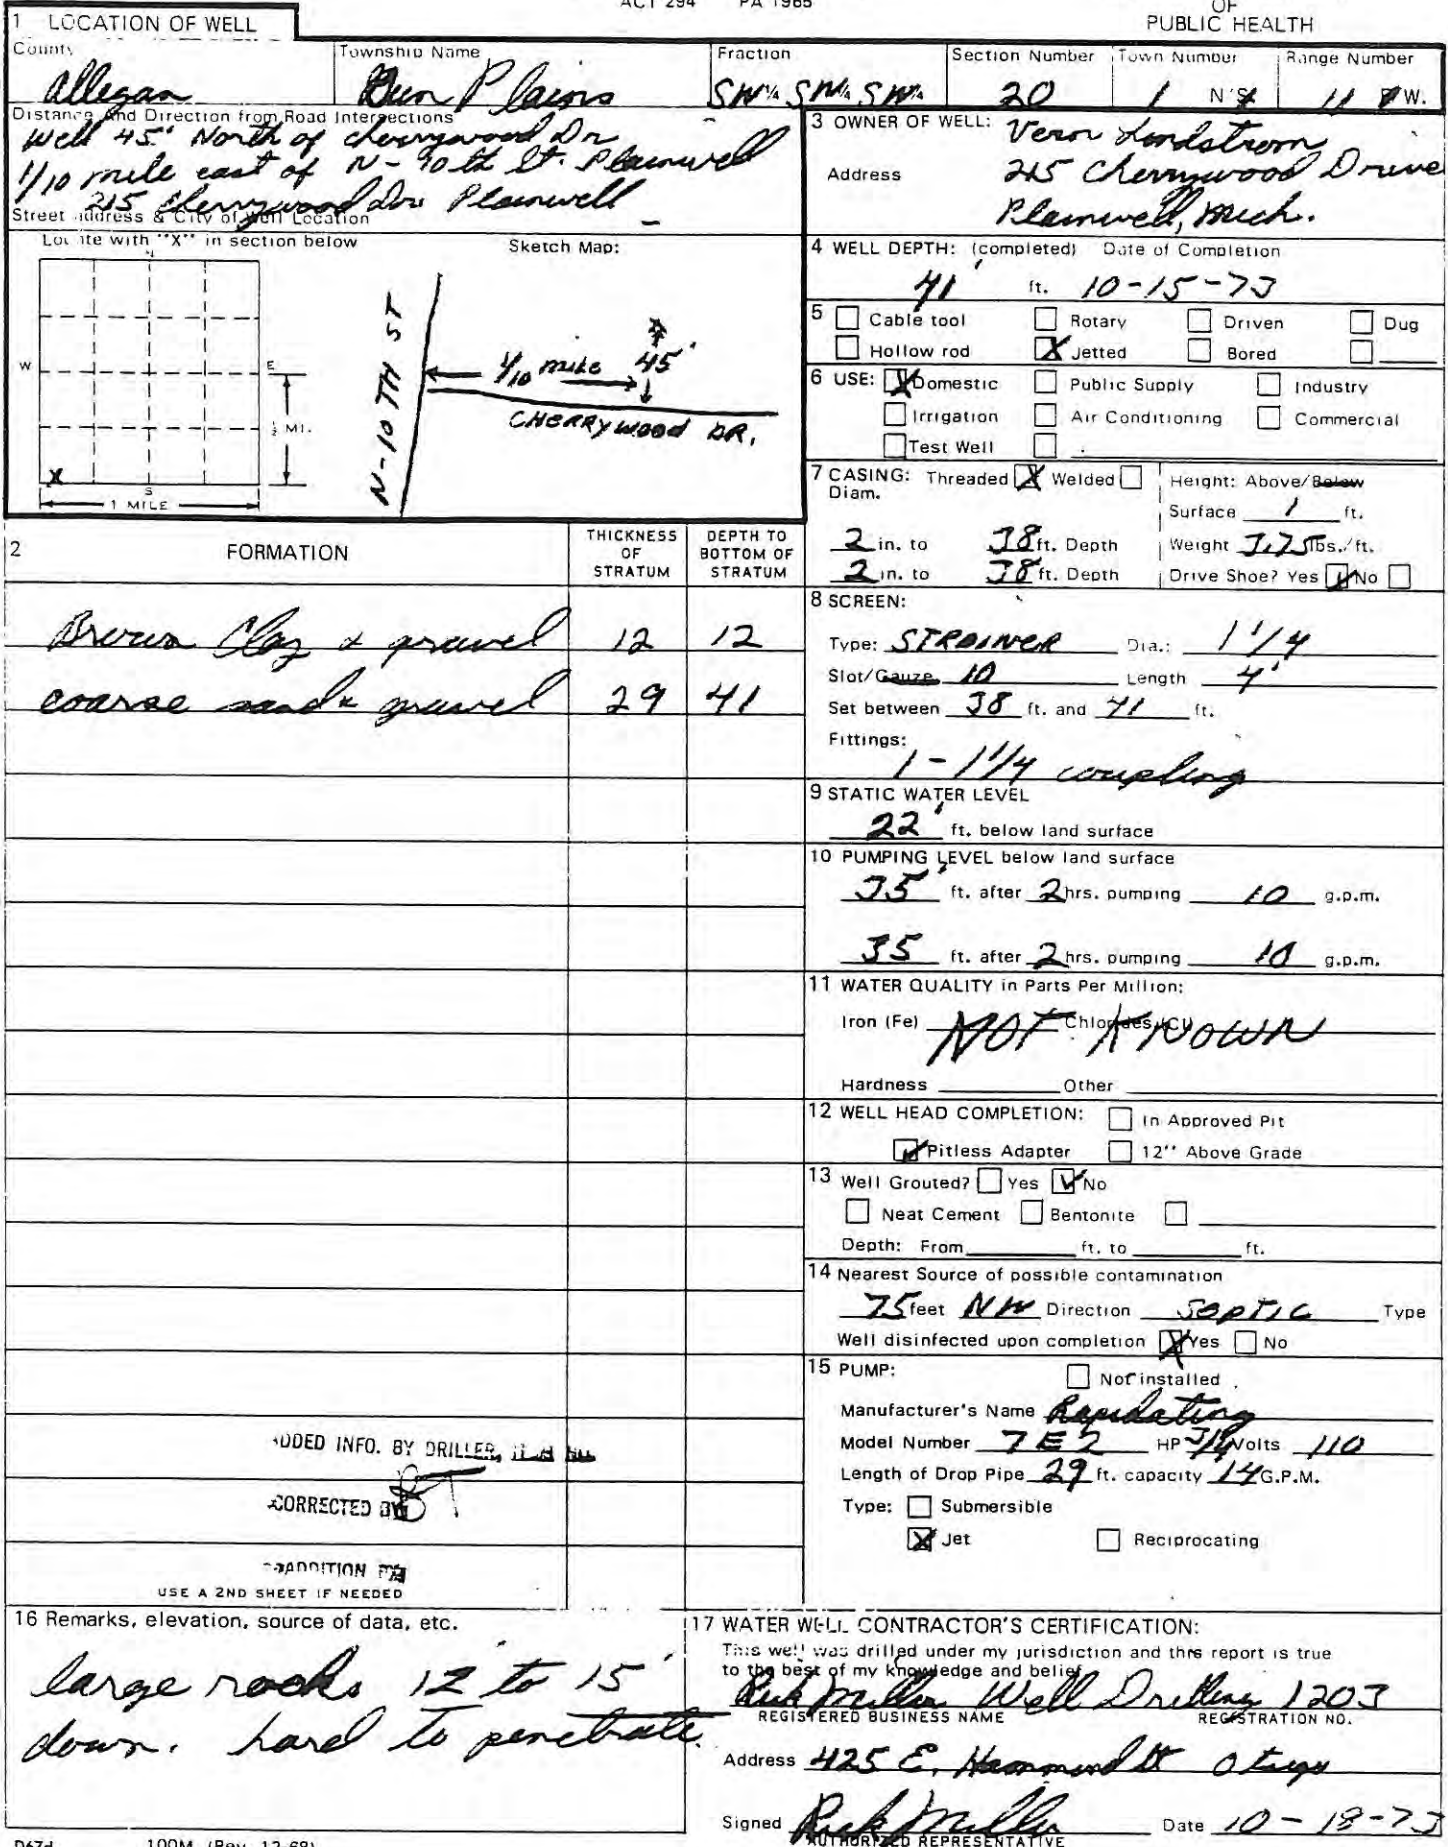 ACT 294 PA 1965
OF
PUBLIC HEALTH
1 LOCATION OF WELL
County Township Name Fraction Section Number Town Number Range Number
Allegan Gun Plains SW¼ SW¼ SW¼ 20 1 N/S 11 E/W.
Distance And Direction from Road Intersections
Well 45' North of Cherrywood Dr
1/10 mile east of N-10th St. Plainwell
215 Cherrywood Dr. Plainwell
Street address & City of Well Location
Locate with "X" in section below Sketch Map:
N
W
E
½ MI.
X
S
1 MILE
N-10TH ST
1/10 mile 45'
CHERRYWOOD DR.
3 OWNER OF WELL: Vern Lindstrom
Address 215 Cherrywood Drive
Plainwell, Mich.
4 WELL DEPTH: (completed) Date of Completion
41' ft. 10-15-73
5 Cable tool Rotary Driven Dug
Hollow rod X Jetted Bored
6 USE: X Domestic Public Supply Industry
Irrigation Air Conditioning Commercial
Test Well
7 CASING: Threaded X Welded Height: Above/Below
Diam.
Surface 1 ft.
2 in. to 38 ft. Depth Weight 3.75 lbs./ft.
2 in. to 38 ft. Depth Drive Shoe? Yes ✓ No
2 FORMATION THICKNESS OF STRATUM DEPTH TO BOTTOM OF STRATUM
Brown Clay & gravel 12 12
coarse sand & gravel 29 41
8 SCREEN:
Type: STRAINER Dia.: 1 1/4
Slot/Gauze 10 Length 4'
Set between 38 ft. and 41 ft.
Fittings:
1 - 1 1/4 coupling
9 STATIC WATER LEVEL
22' ft. below land surface
10 PUMPING LEVEL below land surface
35' ft. after 2 hrs. pumping 10 g.p.m.
35 ft. after 2 hrs. pumping 10 g.p.m.
11 WATER QUALITY in Parts Per Million:
Iron (Fe) Chlorides (Cl)
NOT KNOWN
Hardness Other
12 WELL HEAD COMPLETION: In Approved Pit
✓ Pitless Adapter 12'' Above Grade
13 Well Grouted? Yes ✓ No
Neat Cement Bentonite
Depth: From ft. to ft.
14 Nearest Source of possible contamination
75 feet NW Direction SEPTIC Type
Well disinfected upon completion X Yes No
15 PUMP: Not installed
Manufacturer's Name Rapidating
Model Number 7E2 HP 3/4 Volts 110
Length of Drop Pipe 29 ft. capacity 14 G.P.M.
Type: Submersible
X Jet Reciprocating
ADDED INFO. BY DRILLER,
CORRECTED BY
ADDITION
USE A 2ND SHEET IF NEEDED
16 Remarks, elevation, source of data, etc.
large rocks 12 to 15'
down. hard to penetrate.
17 WATER WELL CONTRACTOR'S CERTIFICATION:
This well was drilled under my jurisdiction and this report is true
to the best of my knowledge and belief
Rick Miller Well Drilling 1203
REGISTERED BUSINESS NAME REGISTRATION NO.
Address 425 E. Hammond St Otsego
Signed Rick Miller Date 10-18-73
AUTHORIZED REPRESENTATIVE
D67d 100M (Rev. 12-68)